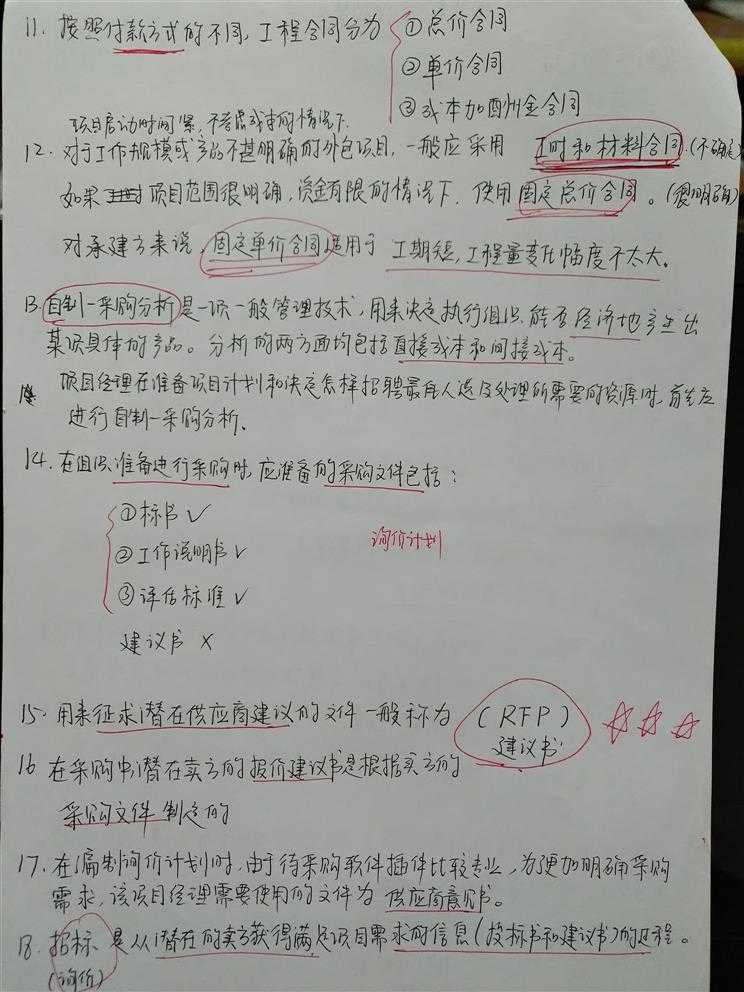 11. 按照付款方式的不同,工程合同分为 ①总价合同
②单价合同
③成本加酬金合同
项目启动时间紧,不考虑成本的情况下.
12. 对于工作规模或产品不甚明确的外包项目,一般应采用 工时和材料合同.(不确定)
如果 项目范围很明确,资金有限的情况下,使用固定总价合同。(很明确)
对承建方来说,固定单价合同适用于 工期短,工程量变化幅度不太大。
13. 自制一采购分析是一项一般管理技术,用来决定执行组织能否经济地产生出
某项具体的产品。分析的两方面均包括直接成本和间接成本。
项目经理在准备项目计划和决定怎样招聘最佳人选及处理所需要的资源时,首先应
进行自制一采购分析.
14. 在组织准备进行采购时,应准备的采购文件包括:
①标书 ✓
②工作说明书 ✓
询价计划
③评估标准 ✓
建议书 ×
15. 用来征求潜在供应商建议的文件一般称为 (RFP) ☆☆☆
建议书
16 在采购中,潜在卖方的报价建议书是根据买方的
采购文件制定的
17. 在编制询价计划时,由于待采购软件插件比较专业,为更加明确采购
需求,该项目经理需要使用的文件为 供应商意见书。
18. 招标 是从潜在的卖方获得满足项目需求的信息(投标书和建议书)的过程。
(询价)